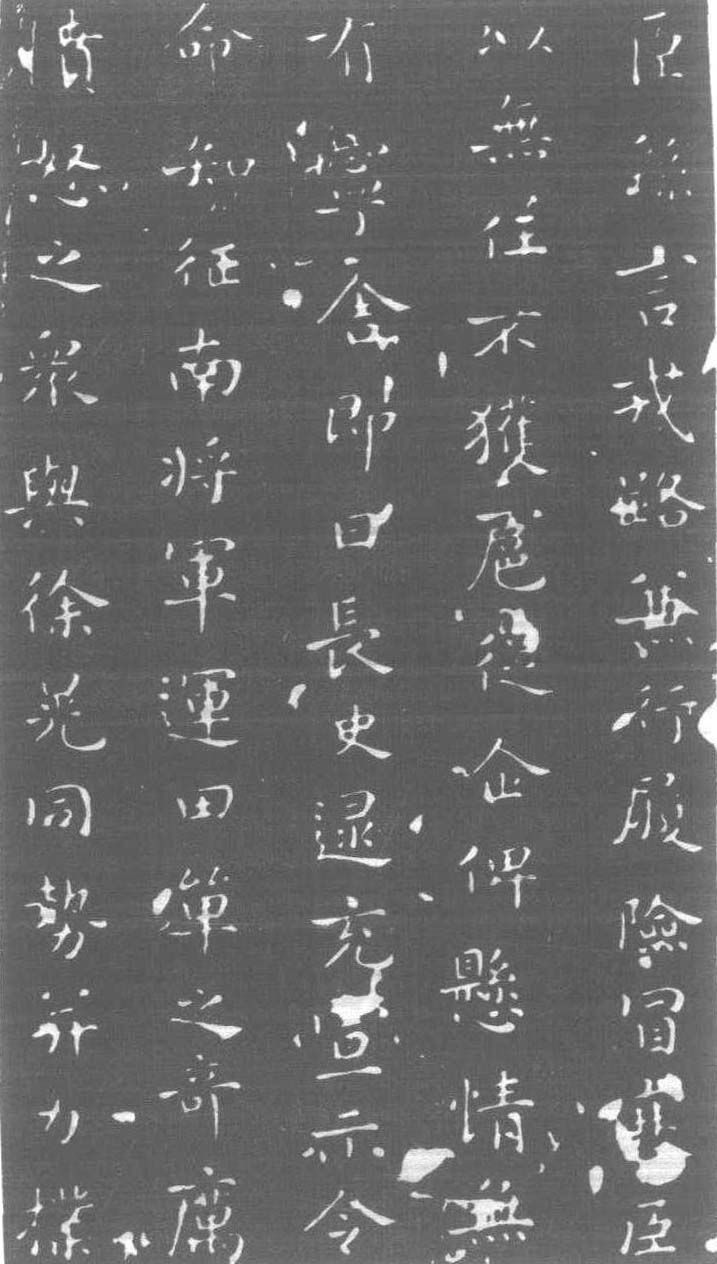 臣繇言戎路兼行履險冒寒臣
以無任不獲扈從企佇懸情無
有寧舍即日長史逯充宣示令
命知征南將軍運田單之奇厲
憤怒之眾與徐晃同勢并力撲